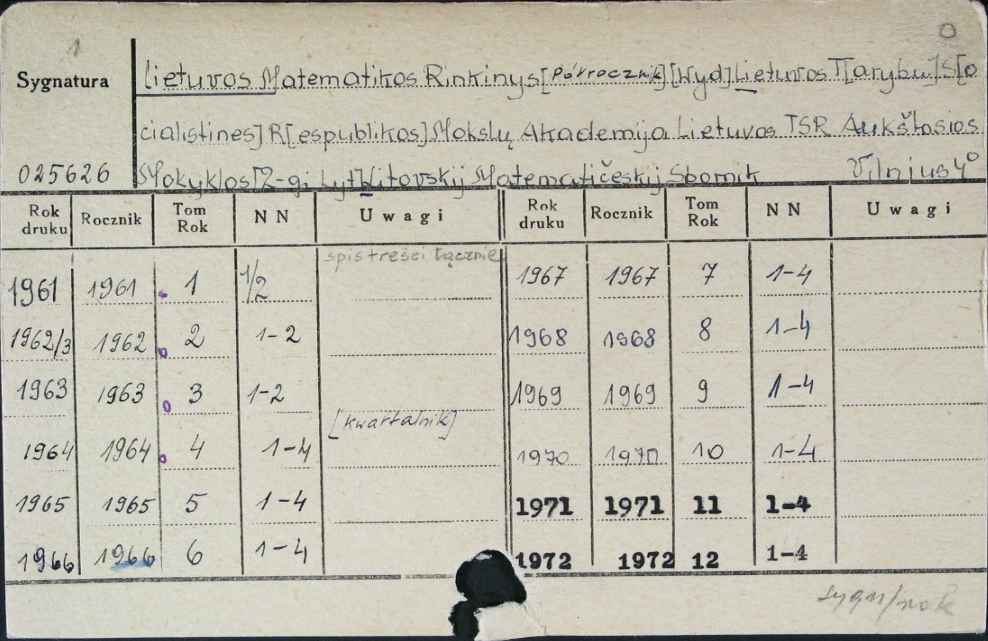 1
Sygnatura
025626
Lietuvos Matematikos Rinkinys [Półrocznik] [Wyd] Lietuvos T[arybų] S[o
cialistines] R[espublikos] Mokslų Akademija Lietuvos TSR Aukštosios
Mokyklos [2-gi tyt] Litovskij Matematičeskij Sbornik Vilnius 4°
Rok druku Rocznik Tom Rok NN Uwagi Rok druku Rocznik Tom Rok NN Uwagi
spis treści łącznie
1961 1961 1 1/2 1967 1967 7 1-4
1962/3 1962 2 1-2 1968 1968 8 1-4
1963 1963 3 1-2 1969 1969 9 1-4
[kwartalnik]
1964 1964 4 1-4 1970 1970 10 1-4
1965 1965 5 1-4 1971 1971 11 1-4
1966 1966 6 1-4 1972 1972 12 1-4
sygn/rok